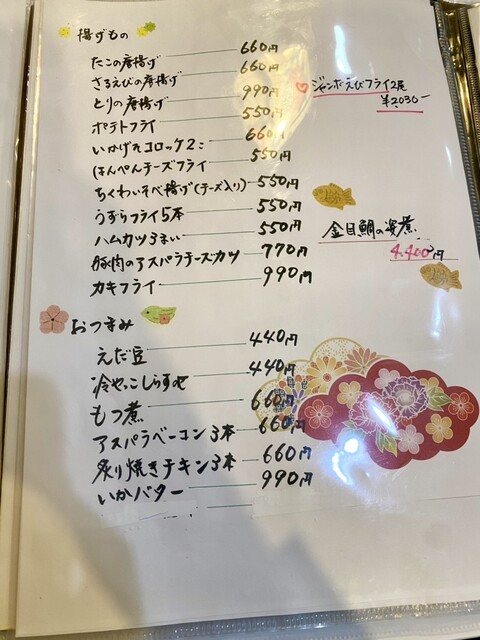 揚げもの
たこの唐揚げ 660円
さるえびの唐揚げ 660円
とりの唐揚げ 990円
ポテトフライ 550円
いかげそコロッケ2こ 660円
はんぺんチーズフライ 550円
ちくわいそべ揚げ(チーズ入り) 550円
うずらフライ5本 550円
ハムカツ3まい 550円
豚肉のアスパラチーズカツ 770円
カキフライ 990円
ジャンボえびフライ2尾
¥2030-
金目鯛の姿煮
4.400円
おつまみ
えだ豆 440円
冷やっこしらすのせ 440円
もつ煮 660円
アスパラベーコン3本 660円
炙り焼きチキン3本 660円
いかバター 990円